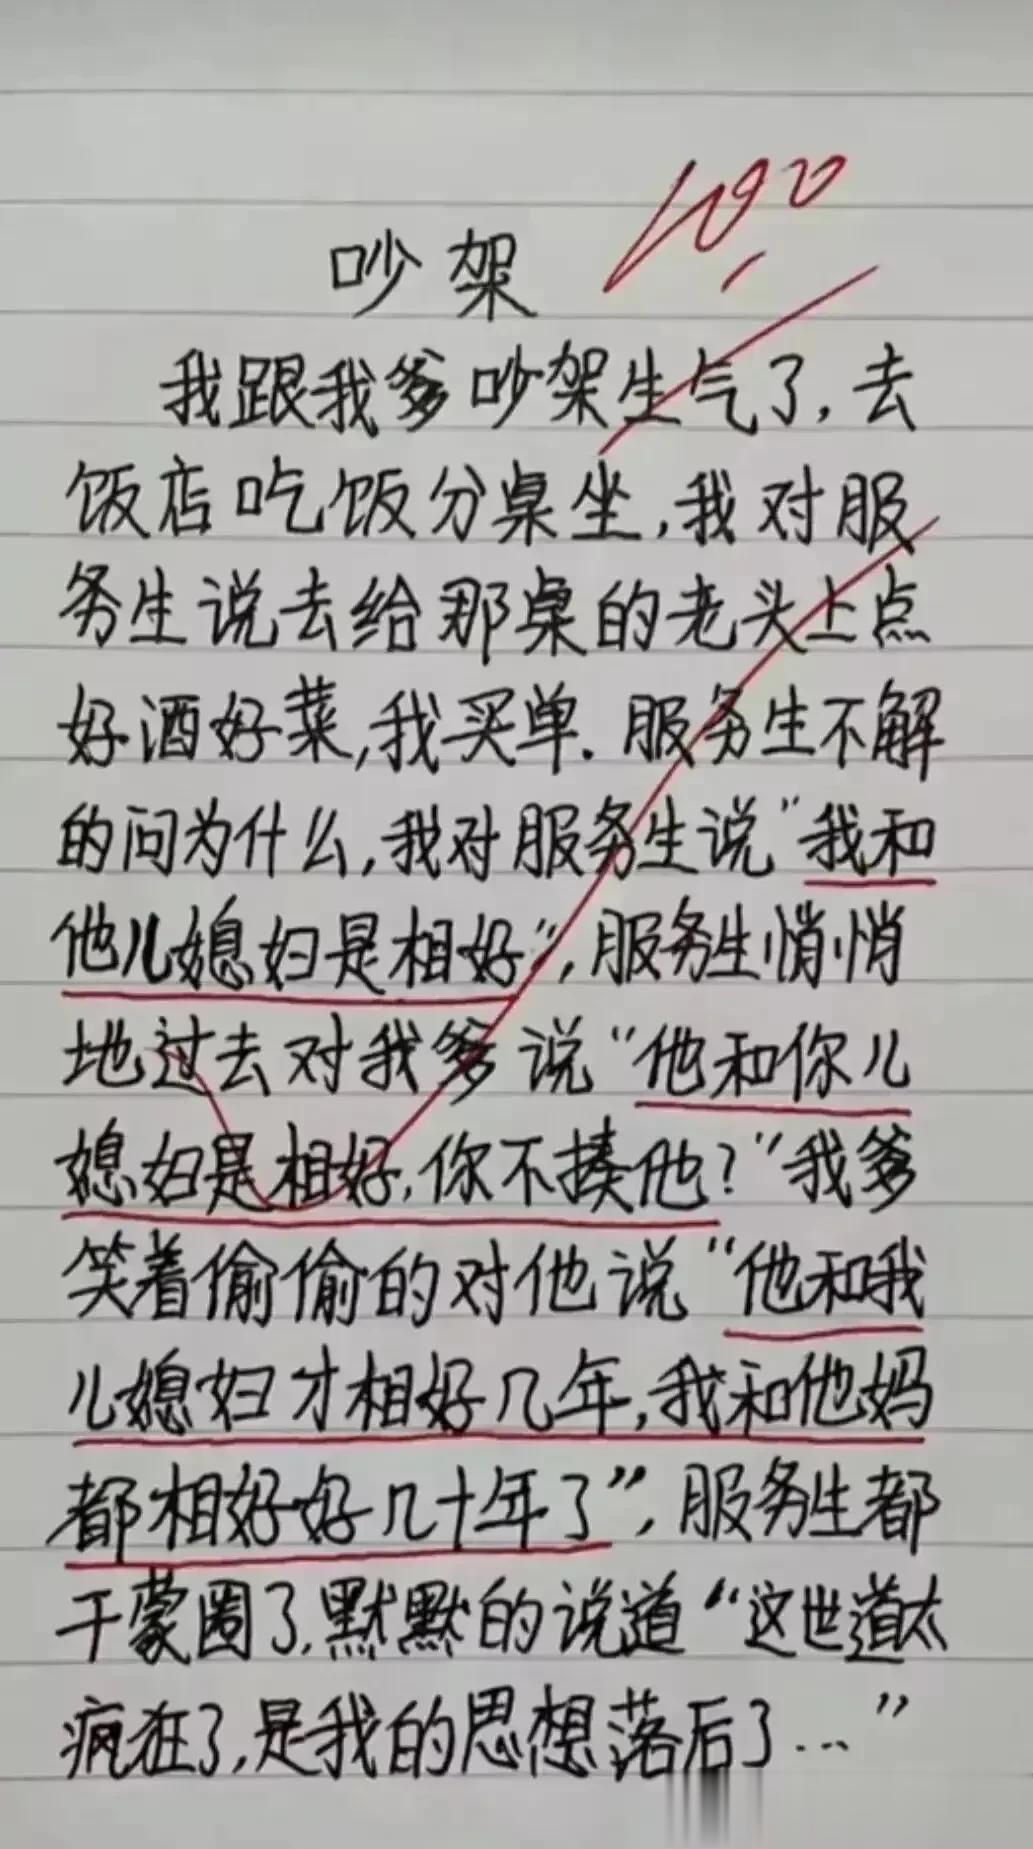 100
吵架
我跟我爹吵架生气了，去
饭店吃饭分桌坐，我对服
务生说去给那桌的老头上点
好酒好菜，我买单．服务生不解
的问为什么，我对服务生说“我和
他儿媳妇是相好”，服务生悄悄
地过去对我爹说“他和你儿
媳妇是相好，你不揍他？”我爹
笑着偷偷的对他说“他和我
儿媳妇才相好几年，我和他妈
都相好好几十年了”，服务生都
干蒙圈了，默默的说道“这世道太
疯狂了，是我的思想落后了...”